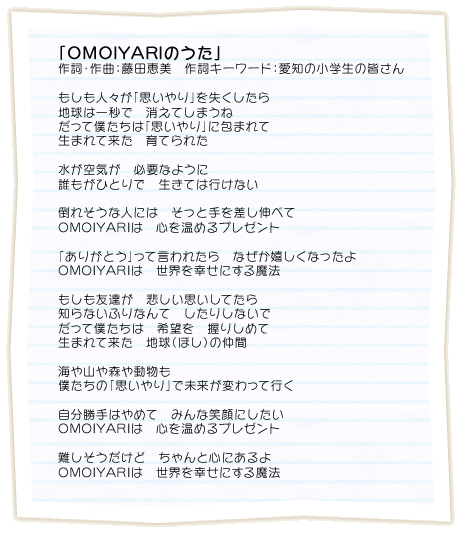 「OMOIYARIのうた」
作詞・作曲：藤田恵美　作詞キーワード：愛知の小学生の皆さん
もしも人々が「思いやり」を失くしたら
地球は一秒で　消えてしまうね
だって僕たちは「思いやり」に包まれて
生まれて来た　育てられた
水が空気が　必要なように
誰もがひとりで　生きては行けない
倒れそうな人には　そっと手を差し伸べて
OMOIYARIは　心を温めるプレゼント
「ありがとう」って言われたら　なぜか嬉しくなったよ
OMOIYARIは　世界を幸せにする魔法
もしも友達が　悲しい思いしてたら
知らないふりなんて　したりしないで
だって僕たちは　希望を　握りしめて
生まれて来た　地球（ほし）の仲間
海や山や森や動物も
僕たちの「思いやり」で未来が変わって行く
自分勝手はやめて　みんな笑顔にしたい
OMOIYARIは　心を温めるプレゼント
難しそうだけど　ちゃんと心にあるよ
OMOIYARIは　世界を幸せにする魔法